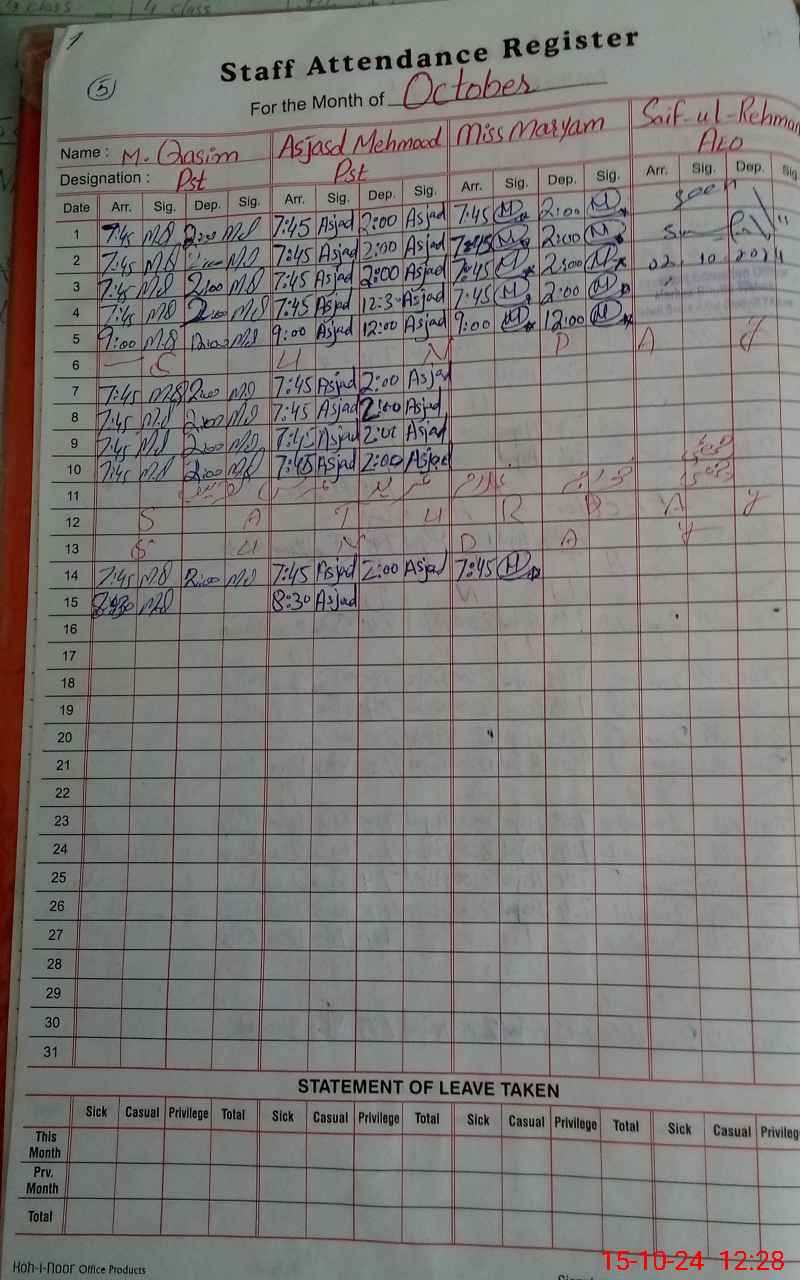 4 class
1
5
Staff Attendance Register
For the Month of October
Name : M. Qasim Asjasd Mehmood Miss Maryam Saif-ul-Rehman
Designation : Pst Pst
Date Arr. Sig. Dep. Sig. Arr. Sig. Dep. Sig. Arr. Sig. Dep. Sig. Arr. Sig. Dep. Sig
1 7:45 MQ 2:00 MQ 7:45 Asjad 2:00 Asjad 7:45 M 2:00 M seen
2 7:45 MQ 2:00 MQ 7:45 Asjad 2:00 Asjad 7:45 M 2:00 M
3 7:45 MQ 2:00 MQ 7:45 Asjad 2:00 Asjad 7:45 M 2:00 M 02 10 2024
4 7:45 MQ 2:00 MQ 7:45 Asjad 12:30 Asjad 7:45 M 2:00 M
5 9:00 MQ 12:00 MQ 9:00 Asjad 12:00 Asjad 9:00 M 12:00 M
6 S U N D A Y
7 7:45 MQ 2:00 MQ 7:45 Asjad 2:00 Asjad
8 7:45 MQ 2:00 MQ 7:45 Asjad 2:00 Asjad
9 7:45 MQ 2:00 MQ 7:45 Asjad 2:00 Asjad
10 7:45 MQ 2:00 MQ 7:45 Asjad 2:00 Asjad
11
12 S A T U R D A Y
13 S U N D A Y
14 7:45 MQ 2:00 MQ 7:45 Asjad 2:00 Asjad 7:45 M
15 8:30 MQ 8:30 Asjad
16
17
18
19
20
21
22
23
24
25
26
27
28
29
30
31
STATEMENT OF LEAVE TAKEN
Sick Casual Privilege Total Sick Casual Privilege Total Sick Casual Privilege Total Sick Casual Privileg
This
Month
Prv.
Month
Total
Koh-i-noor Office Products
15-10-24 12:28